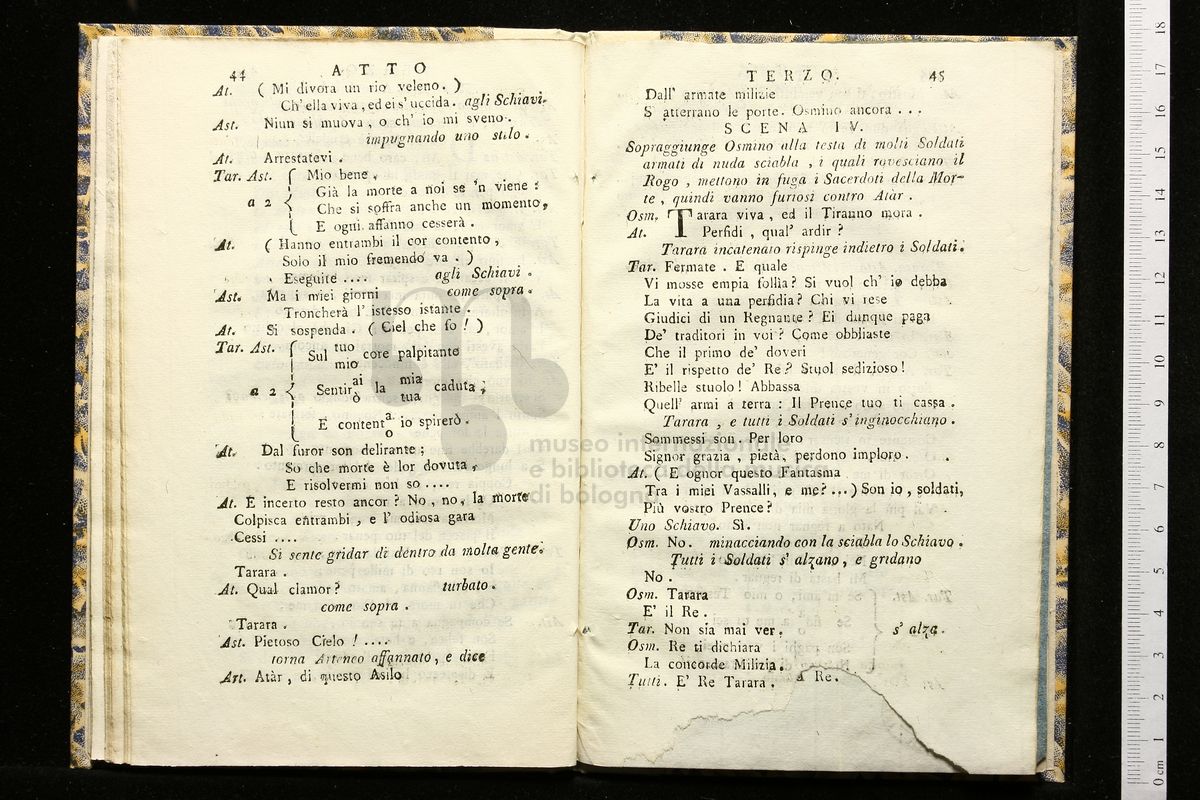 44 ATTO
At. ( Mi divora un rio veleno. )
Ch' ella viva, ed ei s' uccida. agli Schiavi.
Ast. Niun si muova, o ch' io mi sveno.
impugnando uno stilo.
At. Arrestatevi.
Tar. Ast. Mio bene,
Già la morte a noi se 'n viene:
a 2 Che si soffra anche un momento,
E ogni affanno cesserà.
At. ( Hanno entrambi il cor contento,
Solo il mio fremendo va. )
Eseguite .... agli Schiavi.
Ast. Ma i miei giorni come sopra.
Troncherà l' istesso istante.
At. Si sospenda. ( Ciel che fo! )
Tar. Ast. Sul tuo core palpitante
mio
a 2 Sentirai la mia caduta;
ò tua
E contenta io spirerò.
o
At. Dal furor son delirante;
So che morte è lor dovuta,
E risolvermi non so ....
At. E incerto resto ancor? No, no, la morte
Colpisca entrambi, e l' odiosa gara
Cessi ....
Si sente gridar di dentro da molta gente.
Tarara.
At. Qual clamor? turbato.
come sopra.
Tarara.
Ast. Pietoso Cielo! ....
torna Arteneo affannato, e dice
Art. Atàr, di questo Asilo
TERZO. 45
Dall' armate milizie
S atterrano le porte. Osmino ancora ...
SCENA IV.
Sopraggiunge Osmino alla testa di molti Soldati
armati di nuda sciabla, i quali rovesciano il
Rogo, mettono in fuga i Sacerdoti della Mor-
te, quindi vanno furiosi contro Atàr.
Osm. Tarara viva, ed il Tiranno mora.
At. Perfidi, qual' ardir?
Tarara incatenato rispinge indietro i Soldati.
Tar. Fermate. E quale
Vi mosse empia follìa? Si vuol ch' io debba
La vita a una perfidia? Chi vi rese
Giudici di un Regnante? Ei dunque paga
De' traditori in voi? Come obbliaste
Che il primo de' doveri
E' il rispetto de' Re? Stuol sedizioso!
Ribelle stuolo! Abbassa
Quell' armi a terra: Il Prence tuo ti cassa.
Tarara, e tutti i Soldati s' inginocchiano.
Sommessi son. Per loro
Signor grazia, pietà, perdono imploro.
At. ( E ognor questo Fantasma
Tra i miei Vassalli, e me?...) Son io, soldati,
Più vostro Prence?
Uno Schiavo. Sì.
Osm. No. minacciando con la sciabla lo Schiavo.
Tutti i Soldati s' alzano, e gridano
No.
Osm. Tarara
E' il Re.
Tar. Non sia mai ver. s' alza.
Osm. Re ti dichiara
La concorde Milizia.
Tutti. E' Re Tarara. Re.
museo internazionale
e biblioteca della musica
di bologna
18
17
16
15
14
13
12
11
10
9
8
7
6
5
4
3
2
1
0 cm